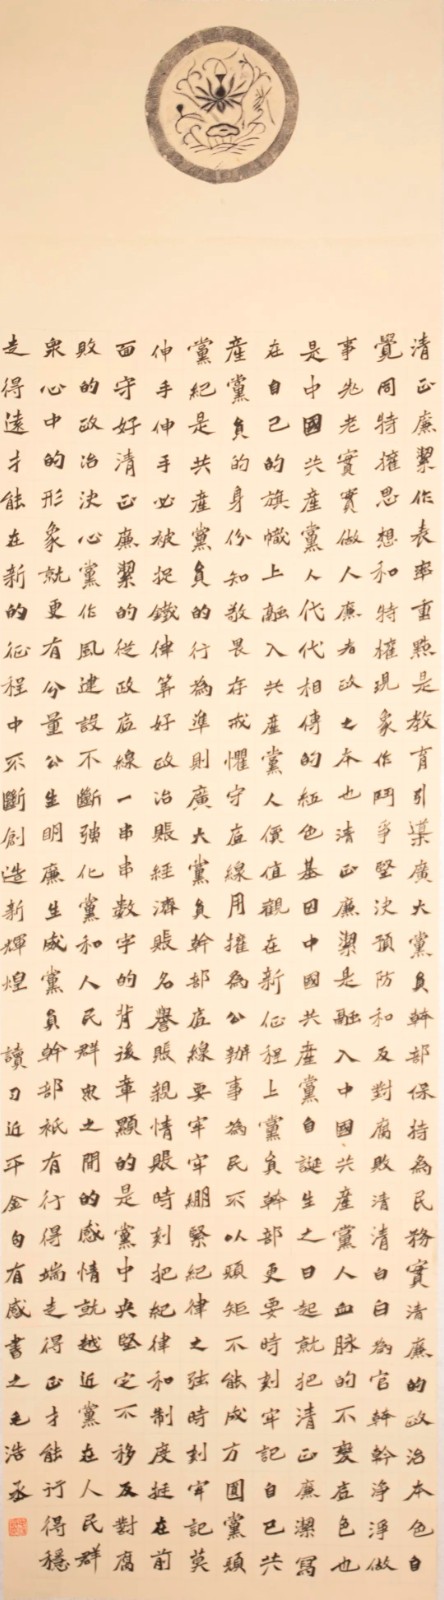 清正廉潔作表率重點是教育引導廣大黨員幹部保持為民務實清廉的政治本色自
覺同特權思想和特權現象作鬥爭堅決預防和反對腐敗清清白白為官幹幹淨淨做
事老老實實做人廉者政之本也清正廉潔是融入中國共產黨人血脈的不變底色也
是中國共產黨人代代相傳的紅色基因中國共產黨自誕生之日起就把清正廉潔寫
在自己的旗幟上融入共產黨人價值觀在新征程上黨員幹部更要時刻牢記自己共
產黨員的身份知敬畏存戒懼守底線用權為公辦事為民不以頭矩不能成方圓黨頭
黨紀是共產黨員的行為準則廣大黨員幹部底線要牢牢繃緊紀律之弦時刻牢記莫
伸手伸手必被捉鐵律算好政治賬經濟賬名譽賬親情賬時刻把紀律和制度挺在前
面守好清正廉潔的從政底線一串串數字的背後章顯的是黨中央堅定不移反對腐
敗的政治決心黨作風建設不斷強化黨和人民群眾之間的感情就越近黨在人民群
眾心中的形象就更有分量公生明廉生威黨員幹部衹有行得端走得正才能行得穩
走得遠才能在新的征程中不斷創造新輝煌 讀習近平金句有感書之毛浩丞